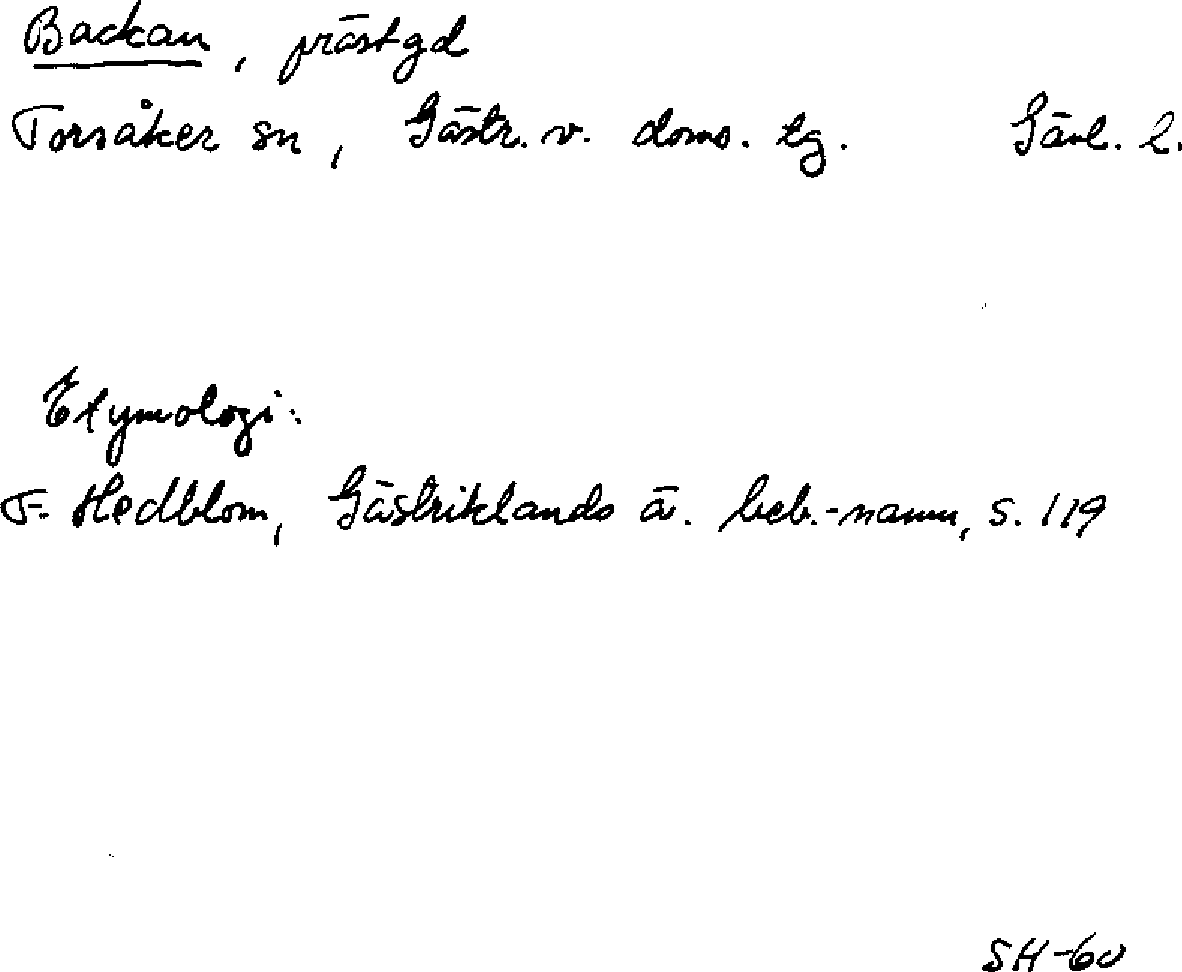 Backan, prästgd
Torsåker sn, Gästr. v. doms. tg. Gävl. l.
Etymologi:
F. Hedblom, Gästriklands ä. beb.-namn, s. 119
SH-60